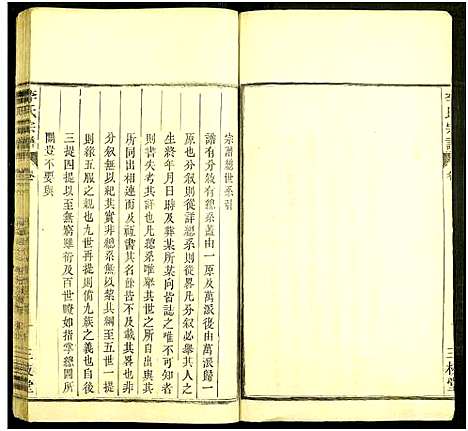 宗譜總世系引
譜有分敘有總系蓋由一原及萬派復由萬派歸一
原也分敘則從詳總系則從畧凡分敘必舉其人之
生終年月日時及葬某所某向皆誌之唯不可知者
則書失考其凡總系唯舉其世之所自出與其
所同出相連而及之祗書其名餘皆不及載其畧也非
分敘無以紀其實非總系無以絜其綱至五世再提
則緣五服之親也九世再提則備九族之義也自後
三提四提以至無窮雖衍及百世瞭如指掌總圖所
關豈不要與
李氏宗譜
卷
三槐堂
李氏宗譜
卷
三槐堂